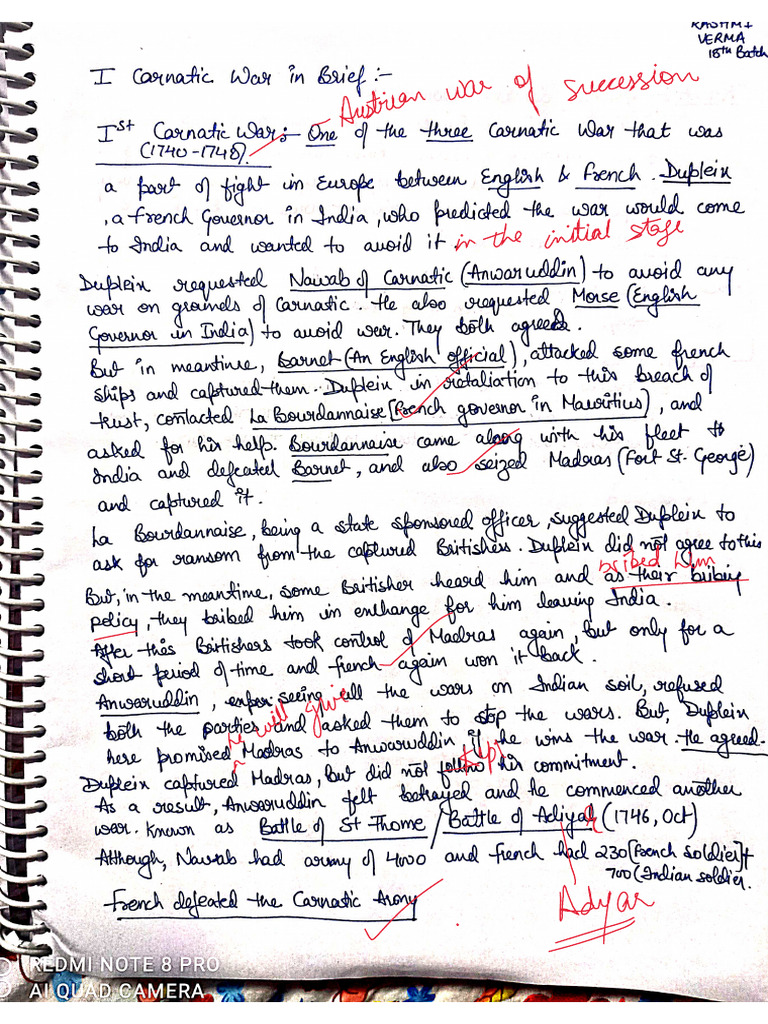 RASHMI
VERMA
18th Batch
I Carnatic War in Brief :-
- Austrian war of succession
Ist Carnatic War :- One of the three Carnatic War that was
(1740-1748)
a part of fight in Europe between English & French. Duplein
, a French Governor in India, who predicted the war would come
to India and wanted to avoid it in the initial stage
Duplein requested Nawab of Carnatic (Anwaruddin) to avoid any
war on grounds of Carnatic. He also requested Morse (English
Governor in India) to avoid war. They both agreed.
But in meantime, Barnet (An English official), attacked some french
ships and captured them. Duplein in retaliation to this breach of
trust, contacted La Bourdannaise [French governor in Mauritius), and
asked for his help. Bourdannaise came along with his fleet to
India and defeated Barnet, and also seized Madras (Fort St. George)
and captured it.
La Bourdannaise, being a state sponsored officer, suggested Duplein to
ask for ransom from the captured Britishers. Duplein did not agree to this
bribed him
But, in the meantime, some Britisher heard him and as their bribing
policy, they bribed him in exchange for him leaving India.
After this Birtishers took control of Madras again, but only for a
short period of time and french again won it back.
Anwaruddin, seeing all the wars on Indian soil, refused
both the parties and asked them to stop the wars. But, Duplein
he will give
here promised Madras to Anwaruddin if he wins the war. He agreed.
Duplein captured Madras, but did not follow his commitment.
As a result, Anwaruddin felt betrayed and he commenced another
war. Known as Battle of St Thome / Battle of Adiyar (1746, Oct)
Although, Nawab had army of 4000 and french had 230 [French soldier] +
700 (Indian soldier.
French defeated the Carnatic Army
Adyar
REDMI NOTE 8 PRO
AI QUAD CAMERA